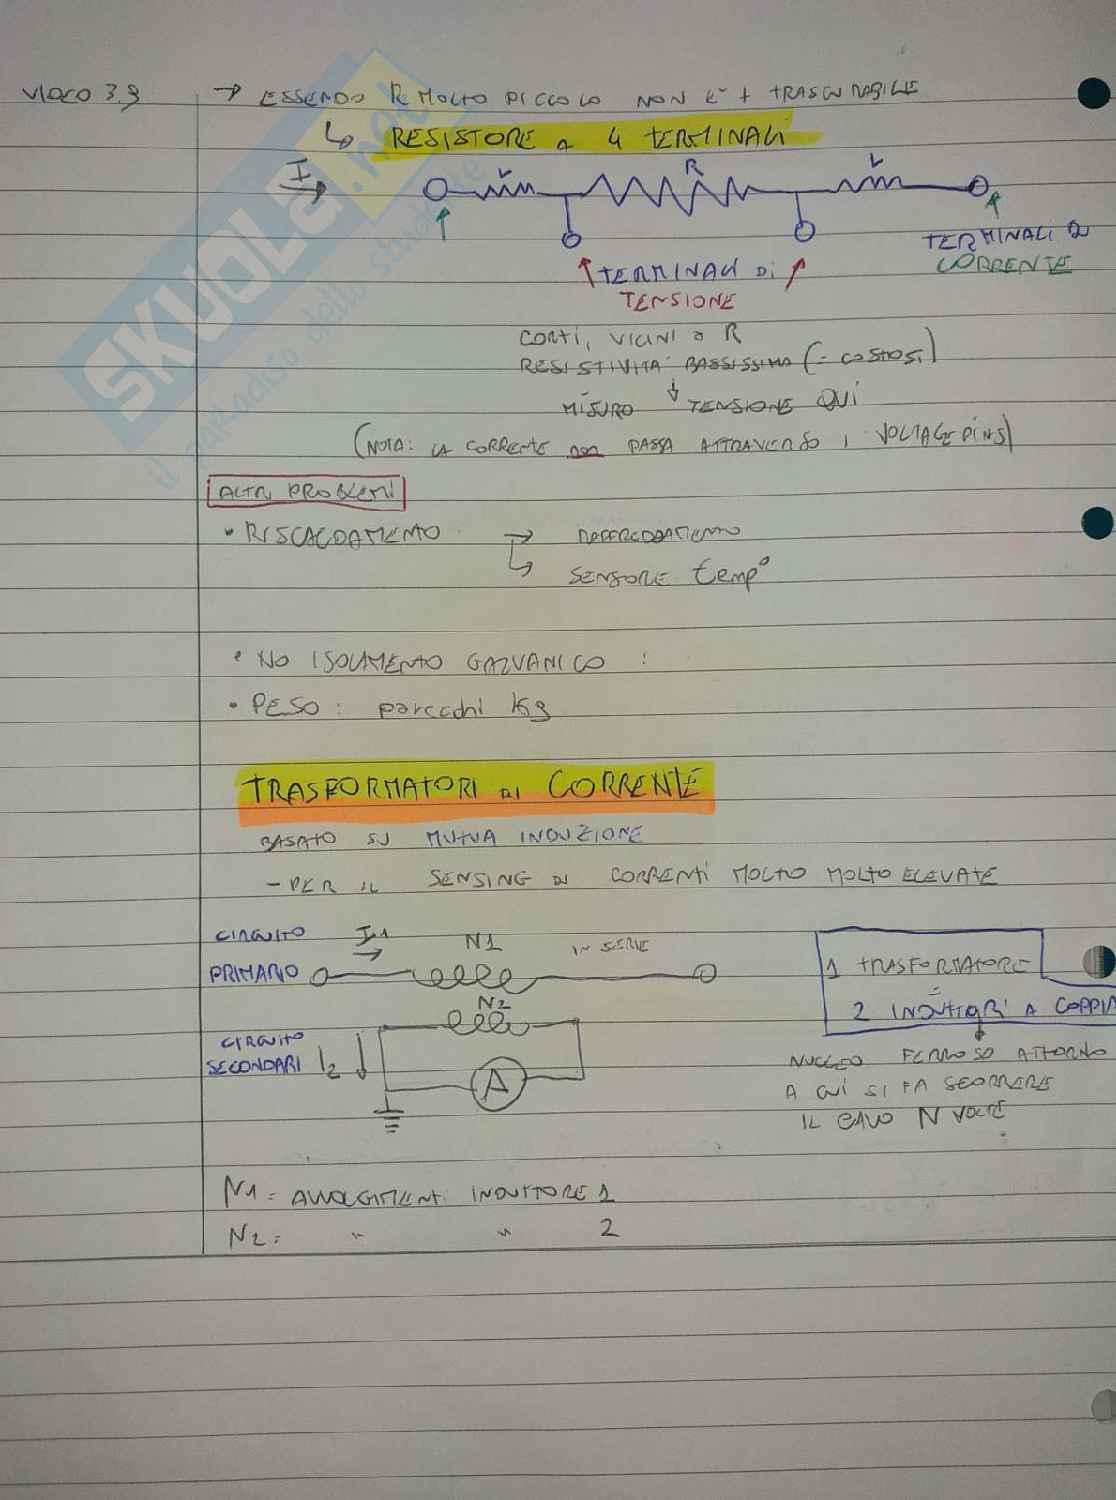 VIDEO 3.9
→ ESSENDO R MOLTO PICCOLO NON È + TRASCURABILE
↳ RESISTORE a 4 TERMINALI
I
r
R
r
TERMINALI DI
CORRENTE
TERMINALI Di
TENSIONE
CORTI, VICINI a R
RESISTIVITA' BASSISSIMA (= COSTOSi)
MISURO TENSIONE QUI
(NOTA: LA CORRENTE non PASSA ATTRAVERSO I VOLTAGE PINS)
ALTRI PROBLEMI
• RISCALDAMENTO → RAFFREDDAMENTO
↳ SENSORE temp°
• NO ISOLAMENTO GALVANICO !
• PESO: parecchi Kg
TRASFORMATORI DI CORRENTE
BASATO SU MUTUA INDUZIONE
- PER IL SENSING DI CORRENTI MOLTO MOLTO ELEVATE
CIRCUITO
PRIMARIO
I1
N1
IN SERIE
N2
CIRCUITO
SECONDARI
I2
A
1 TRASFORMATORE
=
2 INDUTTORI A COPPIA
NUCLEO FERROSO ATTORNO
A CUI SI FA SCORRERE
IL CAVO N VOLTE
N1 = AVVOLGIMENTI INDUTTORE 1
N2 = " " 2
SKUOLA.net
il paradiso dello studente